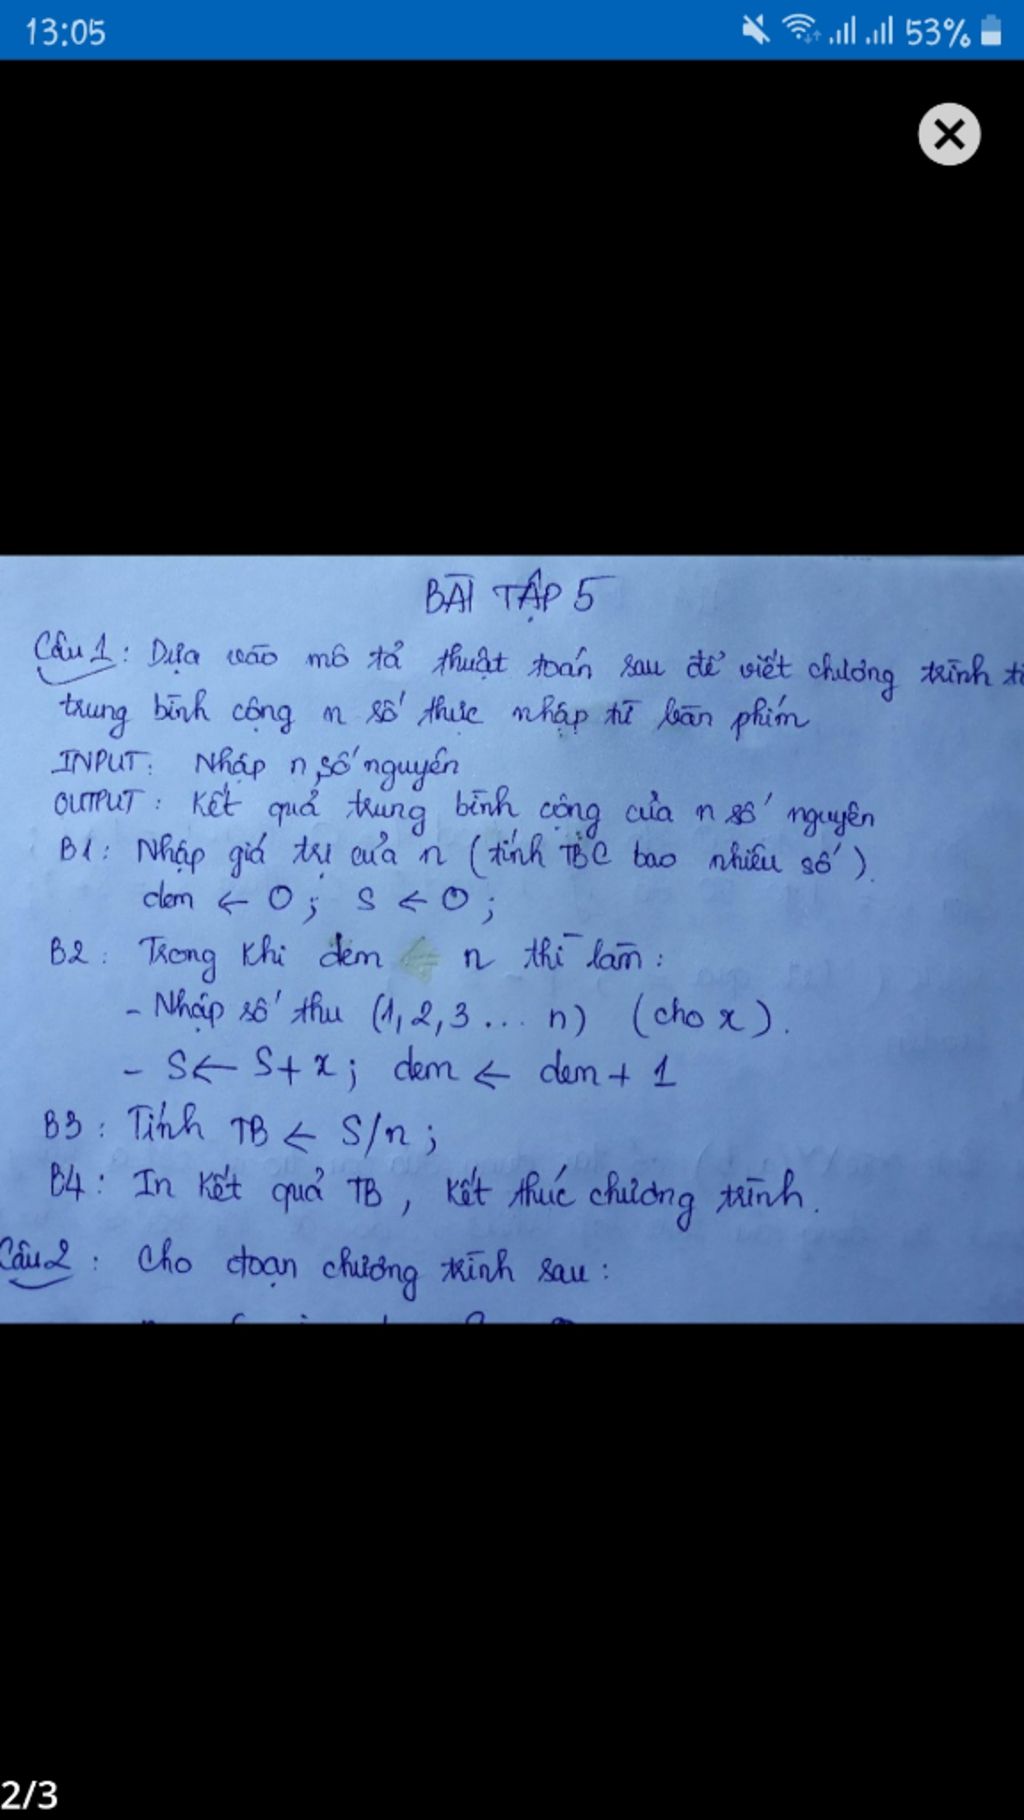 13:05
53%
BÀI TẬP 5
Câu 1: Dựa vào mô tả thuật toán sau để viết chương trình
trung bình cộng n số thực nhập từ bàn phím
INPUT: Nhập n số nguyên
OUTPUT: Kết quả trung bình cộng của n số nguyên
B1: Nhập giá trị của n (tính TBC bao nhiêu số).
dem ← 0; S ← 0;
B2: Trong khi dem n thì làm:
- Nhập số thu (1, 2, 3 ... n) (cho x).
- S ← S + x; dem ← dem + 1
B3: Tính TB ← S/n;
B4: In kết quả TB, kết thúc chương trình.
Câu 2: Cho đoạn chương trình sau:
2/3